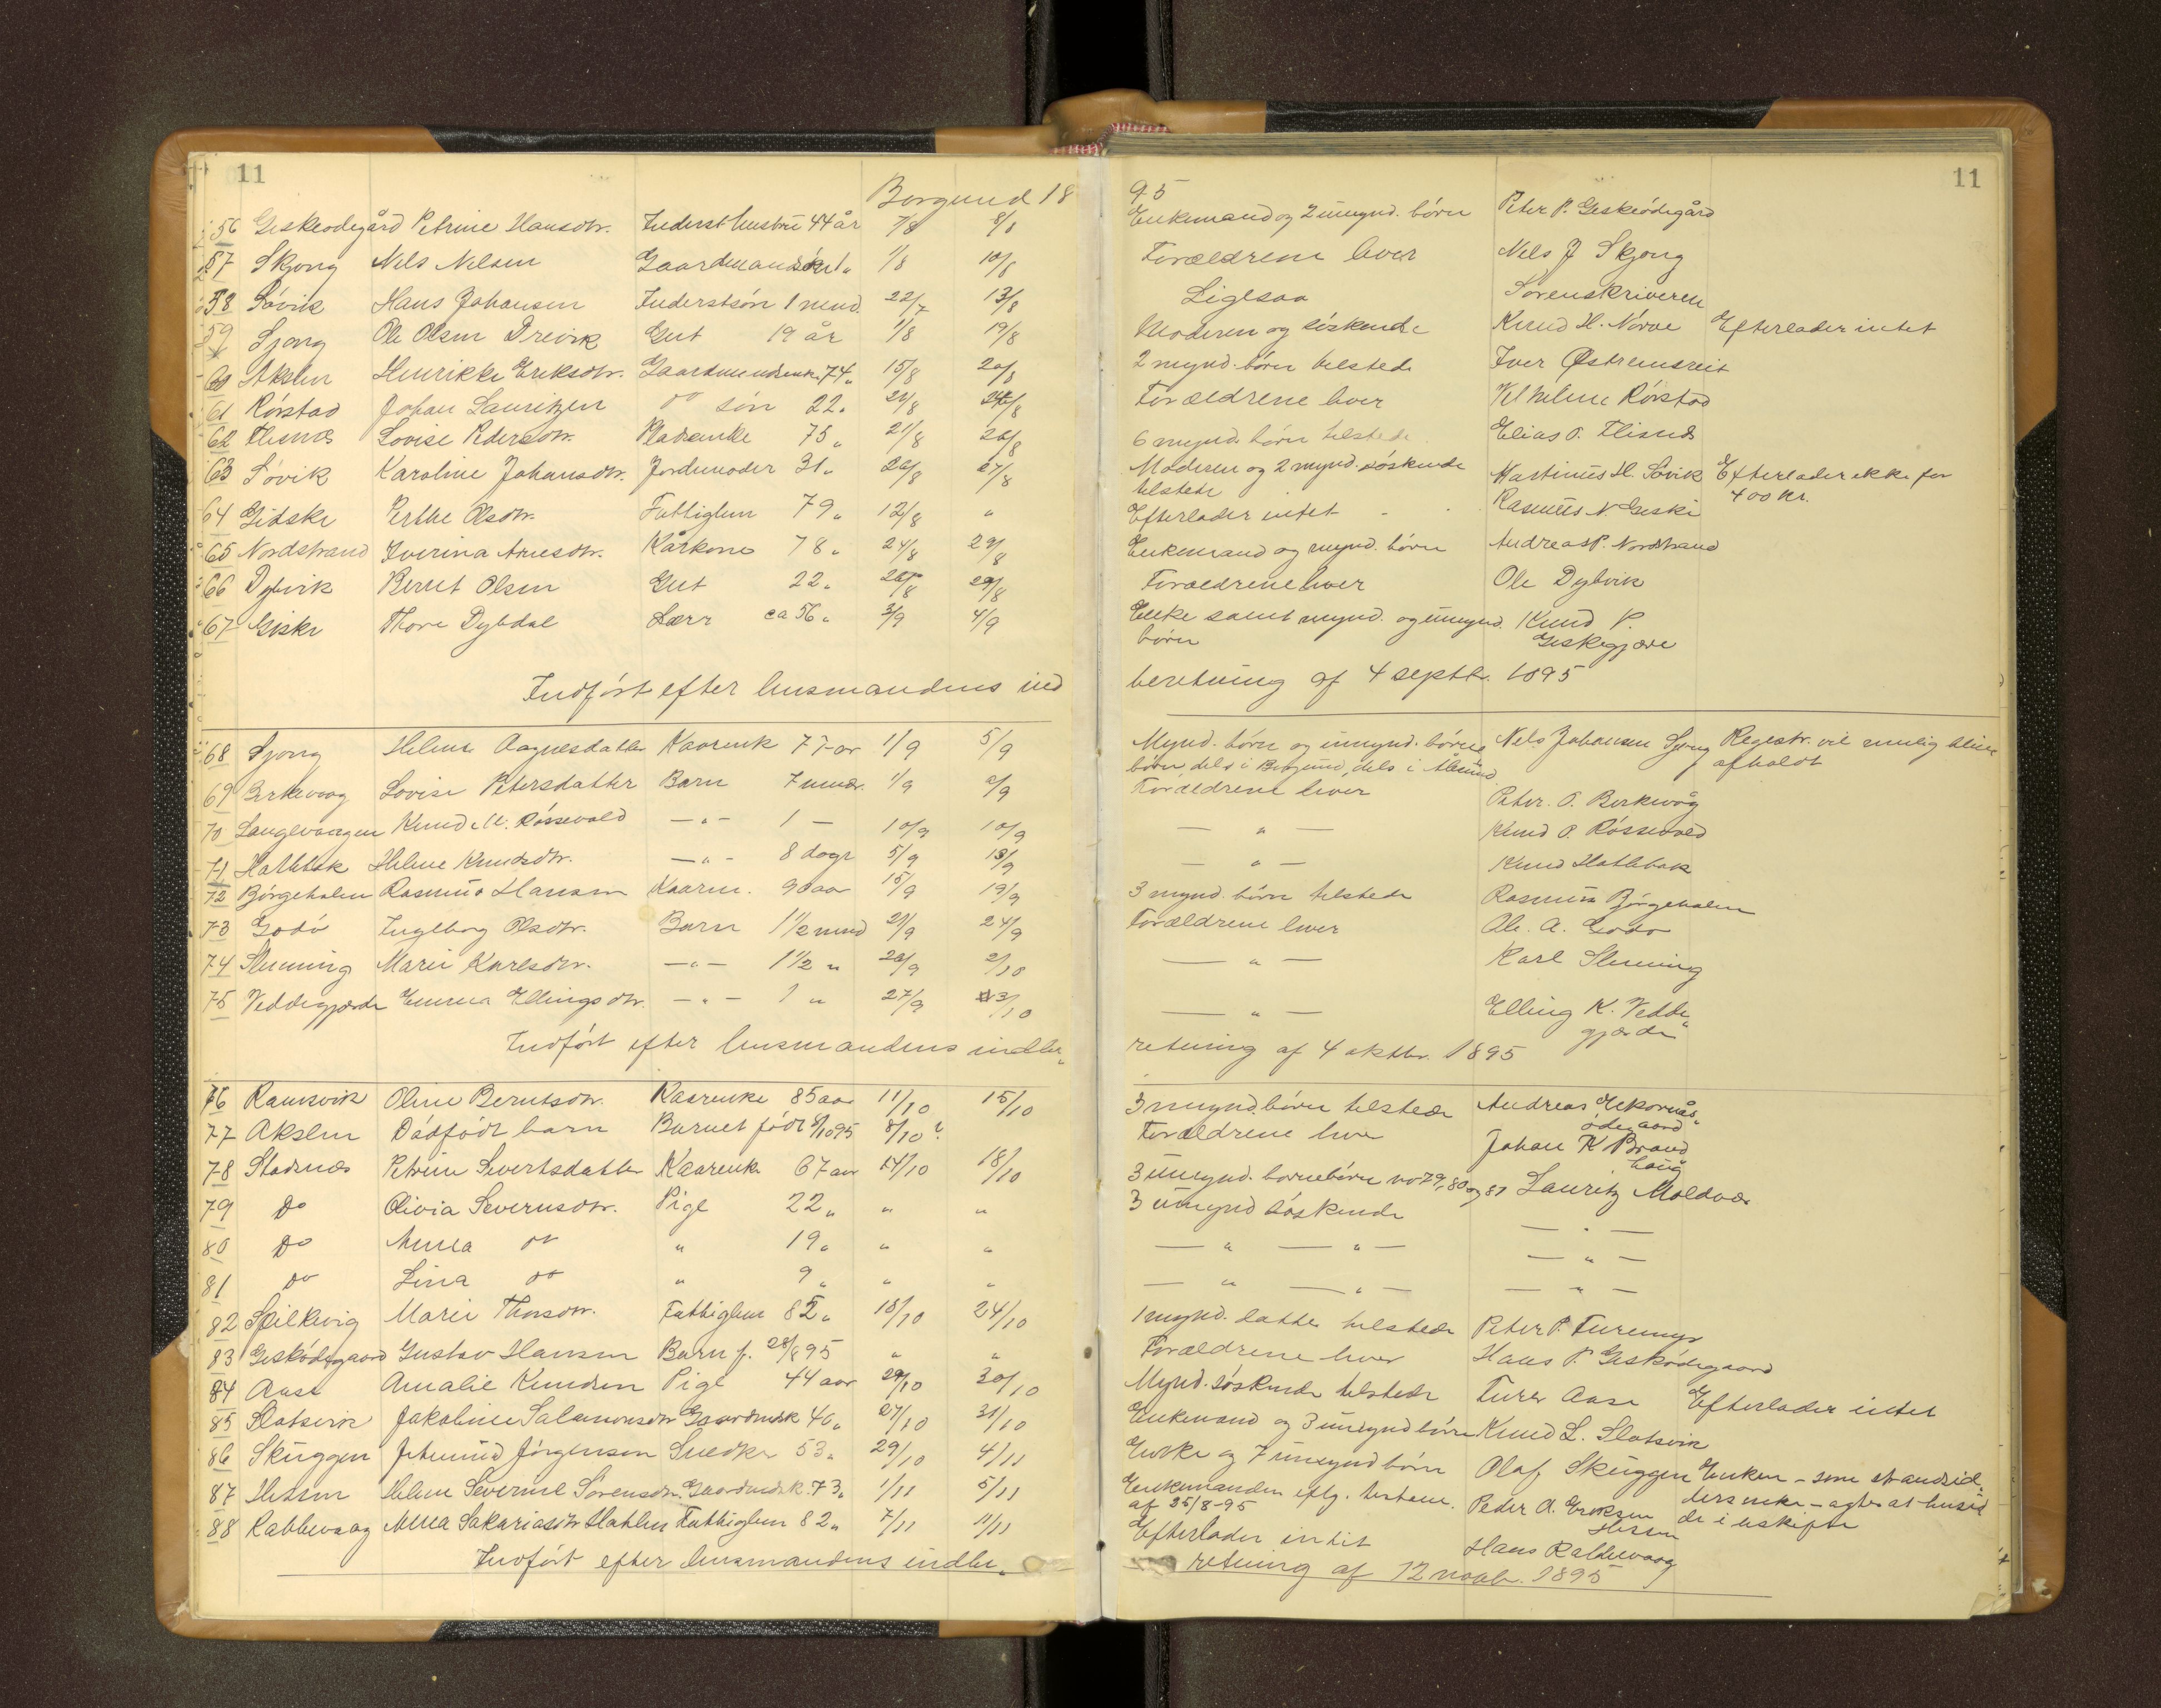 11
Borgund 18
56 Geskeødegård Petrine Hansdtr. Inderst hustru 44 år 7/8 8/8
57 Skjong Nils Nilsen Gaardmandsøn 1 „ 1/8 10/8
58 Søvik Hans Johansen Inderstsøn 1 mnd. 22/7 13/8
59 Sjong Ole Olsen Drevik Gut 19 år 1/8 19/8
60 Akslen Henrikke Eriksdtr. Gaardmandsenk. 74 „ 15/8 20/8
61 Rørstad Johan Lauritzen do søn 22 „ 21/8 24/8
62 Flisnes Lovise Pedersdtr. Pladsenke 75 „ 21/8 26/8
63 Søvik Karoline Johansdtr. Jordmoder 31 „ 26/8 27/8
64 Gidske Berthe Olsdtr. Fattiglem 79 „ 12/8 „
65 Nordstrand Iverina Arnesdtr. Kårkone 78 „ 24/8 29/8
66 Dybvik Bernt Olsen Gut 22 „ 26/8 29/8
67 Giske Thore Dybdal Lærer ca 56 „ 3/9 4/9
Indført efter lensmandens ind
68 Sjong Helene Aagnesdatter Kaarenk 77 aar 1/9 5/9
69 Berkevaag Lovise Petersdatter Barn 7 mndr. 1/9 9/9
70 Langevaagen Knud M. Røssevold — „ — 1 — 10/9 10/9
71 Hatlebak Helene Knudsdtr. — „ — 8 dage 5/9 13/9
72 Bjørgeholen Rasmus Hansen Kaarm. 90 aar 15/9 19/9
73 Godø Ingeborg Olsdtr. Barn 1 1/2 mnd 21/9 24/9
74 Slinning Marie Karlsdtr. — „ — 1 1/2 „ 20/9 2/10
75 Veddegjærde Emma Ellingsdtr. — „ — 1 „ 27/9 3/10
Indført efter lensmandens indbe„
76 Ramsvik Oline Berntsdtr. Kaarenke 85 aar 11/10 15/10
77 Akslen Dødfødt barn Barnet født 8/10 95 8/10 ?
78 Stadsnes Petrine Sivertsdatter Kaarenk. 67 aar 14/10 18/10
79 Do Olivia Severinsdtr. Pige 22 „ „ „
80 Do Anna do „ 19 „ „ „
81 do Lina do „ 9 „ „ „
82 Spilkevig Marie Thorsdtr. Fattiglem 82 „ 18/10 24/10
83 Geskødegaard Gustav Hansen Barn f. 28/8 95 „ „
84 Aase Amalie Knudsen Pige 44 aar 29/10 30/10
85 Slotsvik Jakobine Salamonsdtr Gaardmdsk 40 „ 27/10 31/10
86 Skuggen Jetmund Jørgensen Snedker 53 „ 29/10 4/11
87 Hessen Helene Severine Sørensdtr. Gaardmdsk. 73 „ 1/11 5/11
88 Rabbevaag Anna Sakariasdtr Hatlen Fattiglem 82 „ 7/11 11/11
Indført efter lensmandens indbe„
11
95
Enkemand og 2 umynd. børn Peter P. Geskeødegård
Forældrene lever Nils J Skjong
Ligesaa Sorenskriveren
Moderen og søskende Knud H. Nørve Efterlader intet
2 mynd. børn tilstede Iver Østremsveit
Forældrene lever Vilhelm Rørstad
6 mynd. børn tilstede Elias O. Flisnes
Moderen og 2 mynd. søskende Martinus H. Søvik Efterlader ikke for
tilstede 400 kr.
Efterlader intet Rasmus N. Geske
Enkemand og mynd. børn Andreas P. Nordstrand
Forældrene lever Ole Dybvik
Enke samt mynd. og umynd. Knud P.
børn Geskegjære
beretning af 4 septb. 1895
Mynd. børn og umynd. børne Nils Johansen Sjong Registr. vil mulig blive
børn, dels i Borgund, dels i Ålesund afholdt
Forældrene lever Peter O. Berkevåg
— „ — Knud O. Røssevold
— „ — Knud Hatlebak
3 mynd. børn tilstede Rasmus Bjørgeholen
Forældrene lever Ole A. Godø
— „ — Karl Slinning
— „ — Elling K. Vedde„
gjærde
retning af 4 oktbr. 1895
3 mynd. børn tilstede Andreas Ekornås„
ødegaard
Forældrene lever Johan K Brand„
haug
3 umynd. barnebørn no 79, 80 og 81 Lauritz Moldvær
3 umynd søskende — „ —
— „ — „ — — „ —
— „ — „ — — „ —
1 mynd. datter tilstede Peter P. Furemyr
Forældrene lever Hans P. Geskødegaard
Mynd. søskende tilstede Ture Aase Efterlader intet
Enkemand og 3 umynd børn Knud L. Slotsvik
Enke og 7 umynd børn Olaf Skuggen Enken – som strandsid„
derenke – agter at hensid
Enkemanden eflg. testam. Peder A. Eriksen de i uskifte
af 25/8-95 Hessen
Efterlader intet Hans Rabbevaag
retning af 12 novbr. 1895